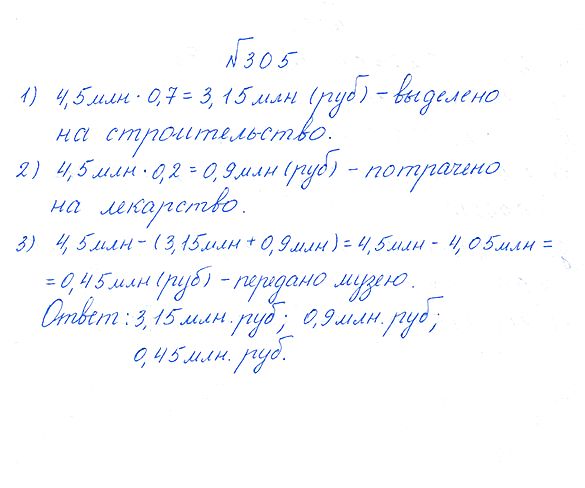 №305
1) 4,5млн · 0,7 = 3,15млн (руб) – выделено
на строительство.
2) 4,5млн · 0,2 = 0,9млн (руб) – потрачено
на лекарство.
3) 4,5млн – (3,15млн + 0,9млн) = 4,5млн – 4,05млн =
= 0,45млн (руб) – передано музею.
Ответ: 3,15млн. руб; 0,9млн. руб;
0,45млн. руб.